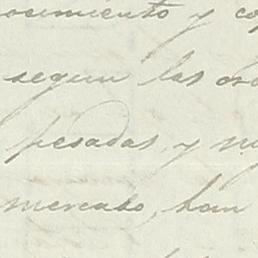 ocimiento y co
segun las or
pesadas, y n
mercado, han